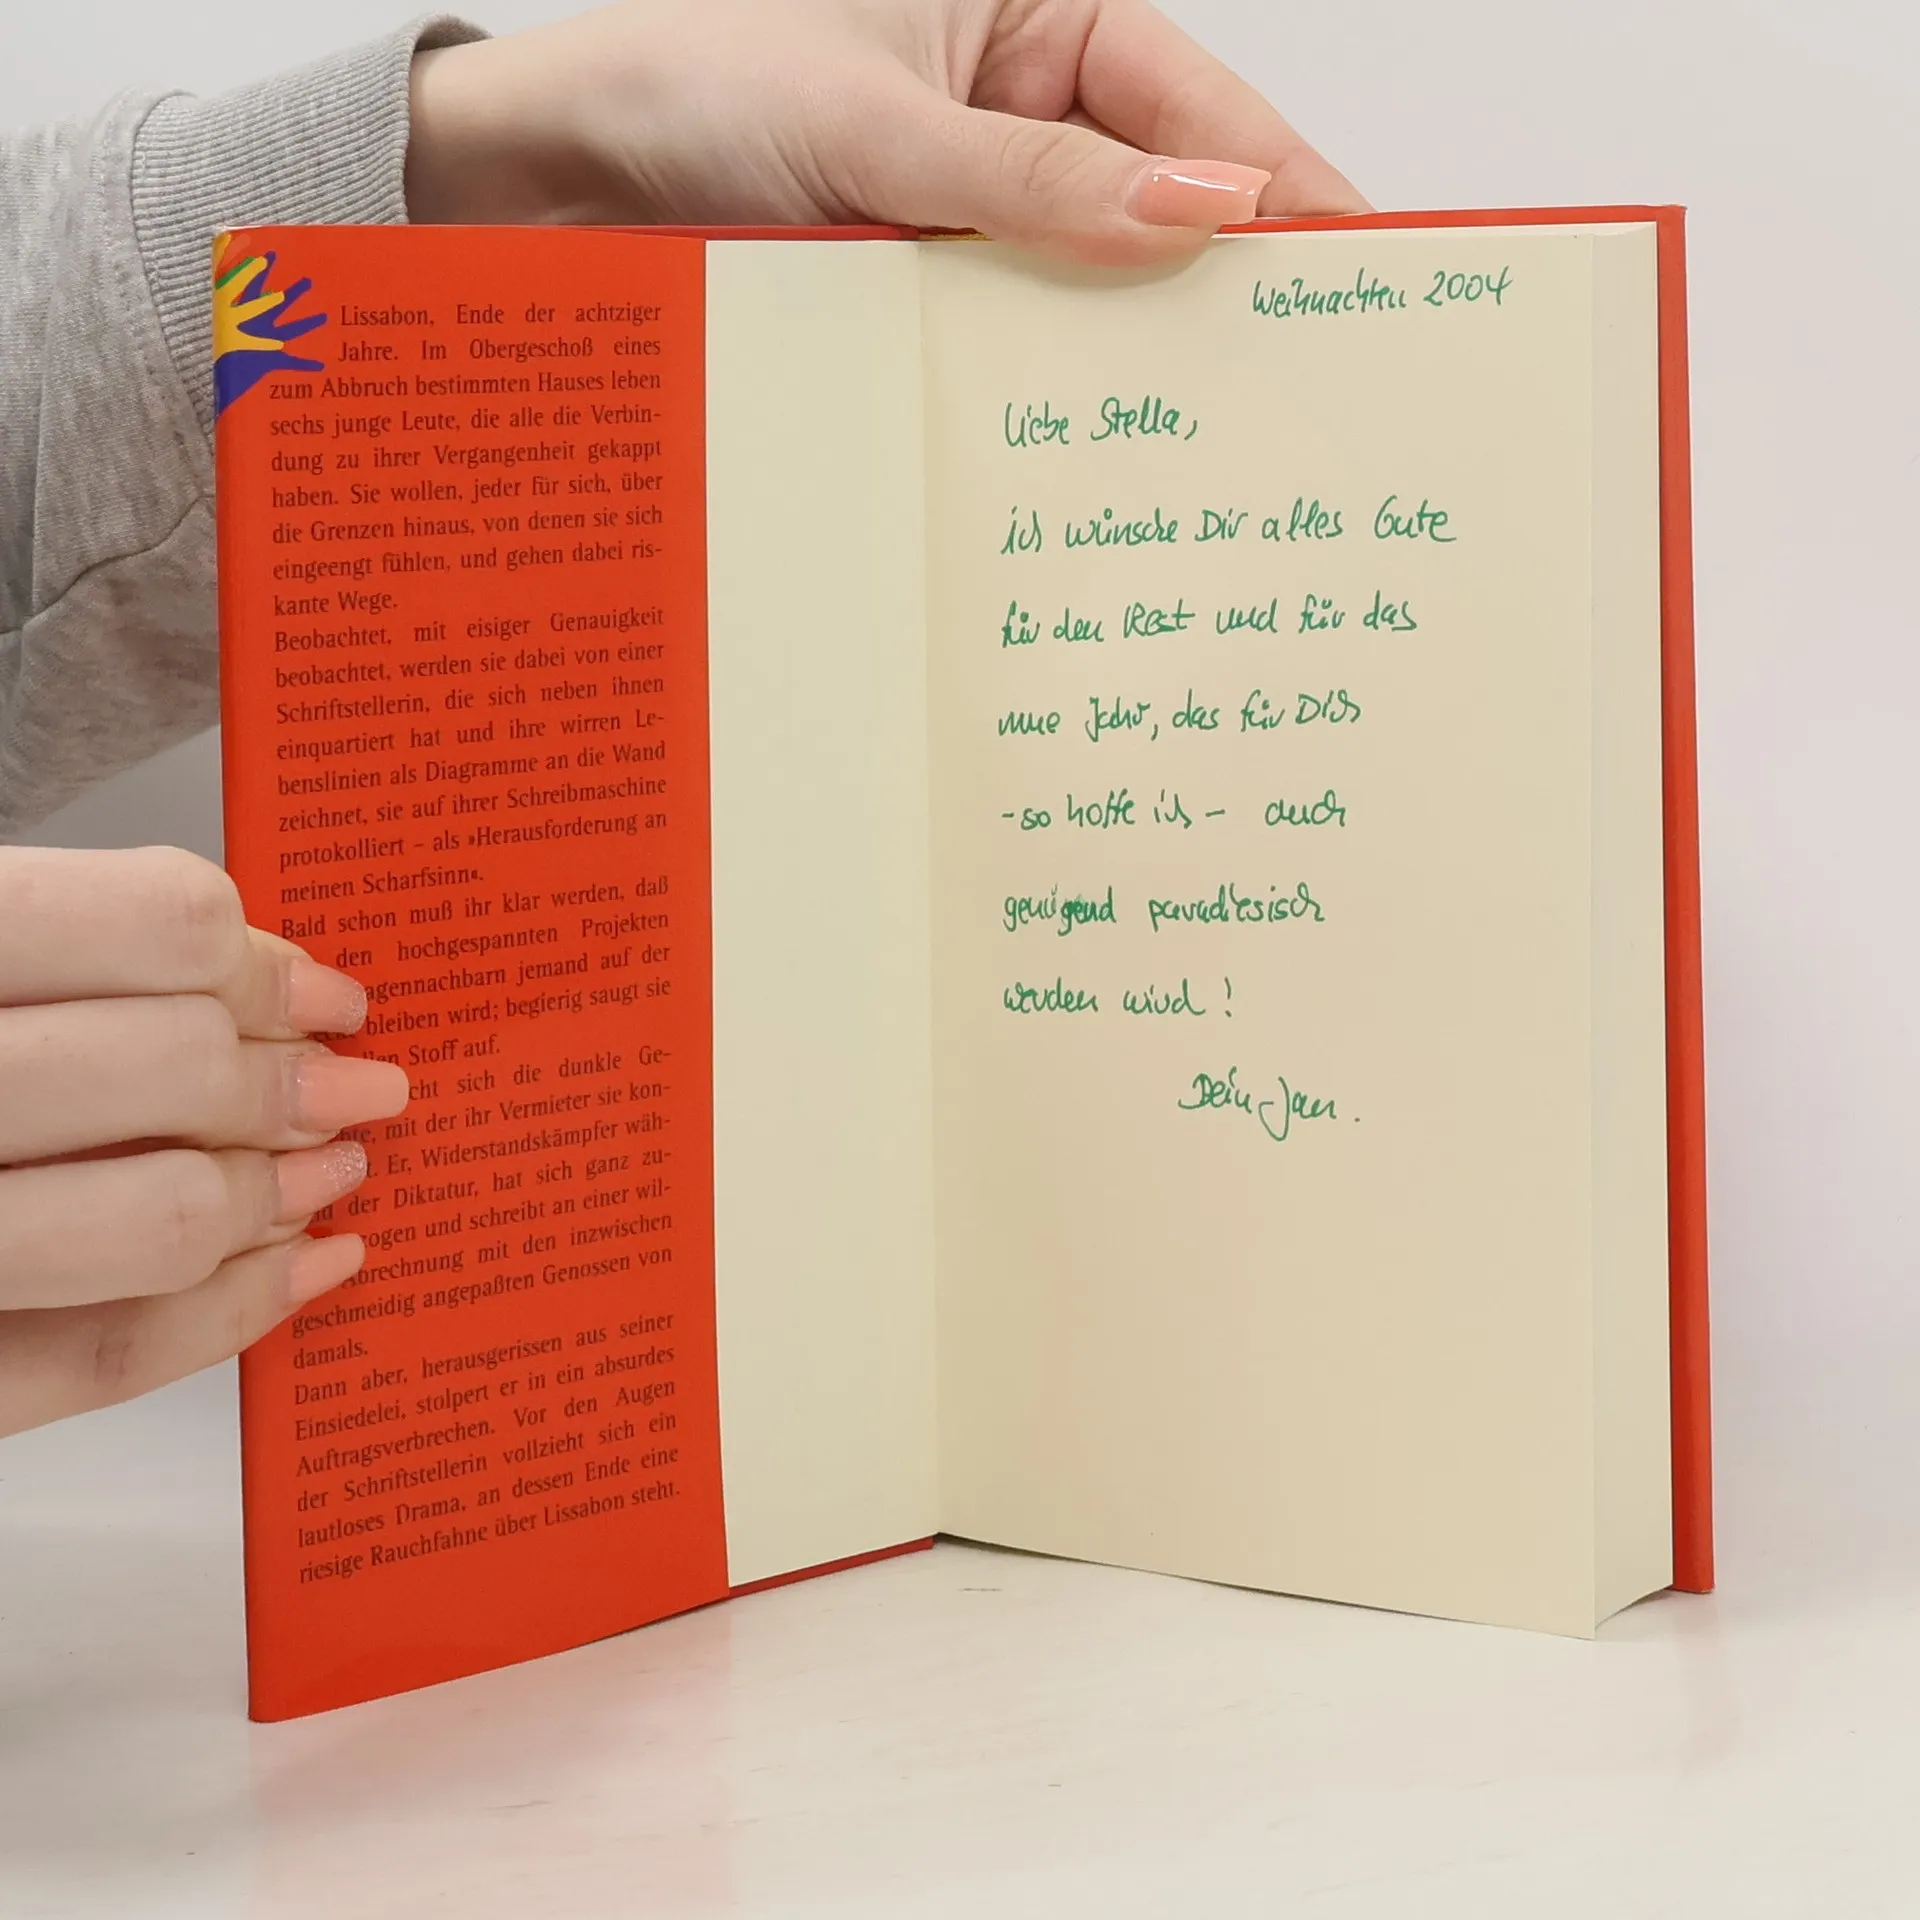 Lissabon, Ende der achtziger
Jahre. Im Obergeschoß eines
zum Abbruch bestimmten Hauses leben
sechs junge Leute, die alle die Verbin-
dung zu ihrer Vergangenheit gekappt
haben. Sie wollen, jeder für sich, über
die Grenzen hinaus, von denen sie sich
eingeengt fühlen, und gehen dabei ris-
kante Wege.
Beobachtet, mit eisiger Genauigkeit
beobachtet, werden sie dabei von einer
Schriftstellerin, die sich neben ihnen
einquartiert hat und ihre wirren Le-
benslinien als Diagramme an die Wand
zeichnet, sie auf ihrer Schreibmaschine
protokolliert – als »Herausforderung an
meinen Scharfsinn«.
Bald schon muß ihr klar werden, daß
den hochgespannten Projekten
agennachbarn jemand auf der
bleiben wird; begierig saugt sie
Stoff auf.
cht sich die dunkle Ge-
hte, mit der ihr Vermieter sie kon-
t. Er, Widerstandskämpfer wäh-
der Diktatur, hat sich ganz zu-
zogen und schreibt an einer wil-
Abrechnung mit den inzwischen
geschmeidig angepaßten Genossen von
damals.
Dann aber, herausgerissen aus seiner
Einsiedelei, stolpert er in ein absurdes
Auftragsverbrechen. Vor den Augen
der Schriftstellerin vollzieht sich ein
lautloses Drama, an dessen Ende eine
riesige Rauchfahne über Lissabon steht.
Weihnachten 2004
Liebe Stella,
ich wünsche Dir alles Gute
für den Rest und für das
neue Jahr, das für Dich
- so hoffe ich - auch
genügend paradiesisch
werden wird!
Dein Jan.